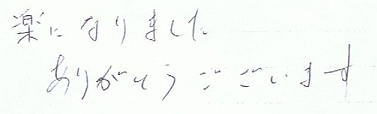 楽になりました
ありがとうございます